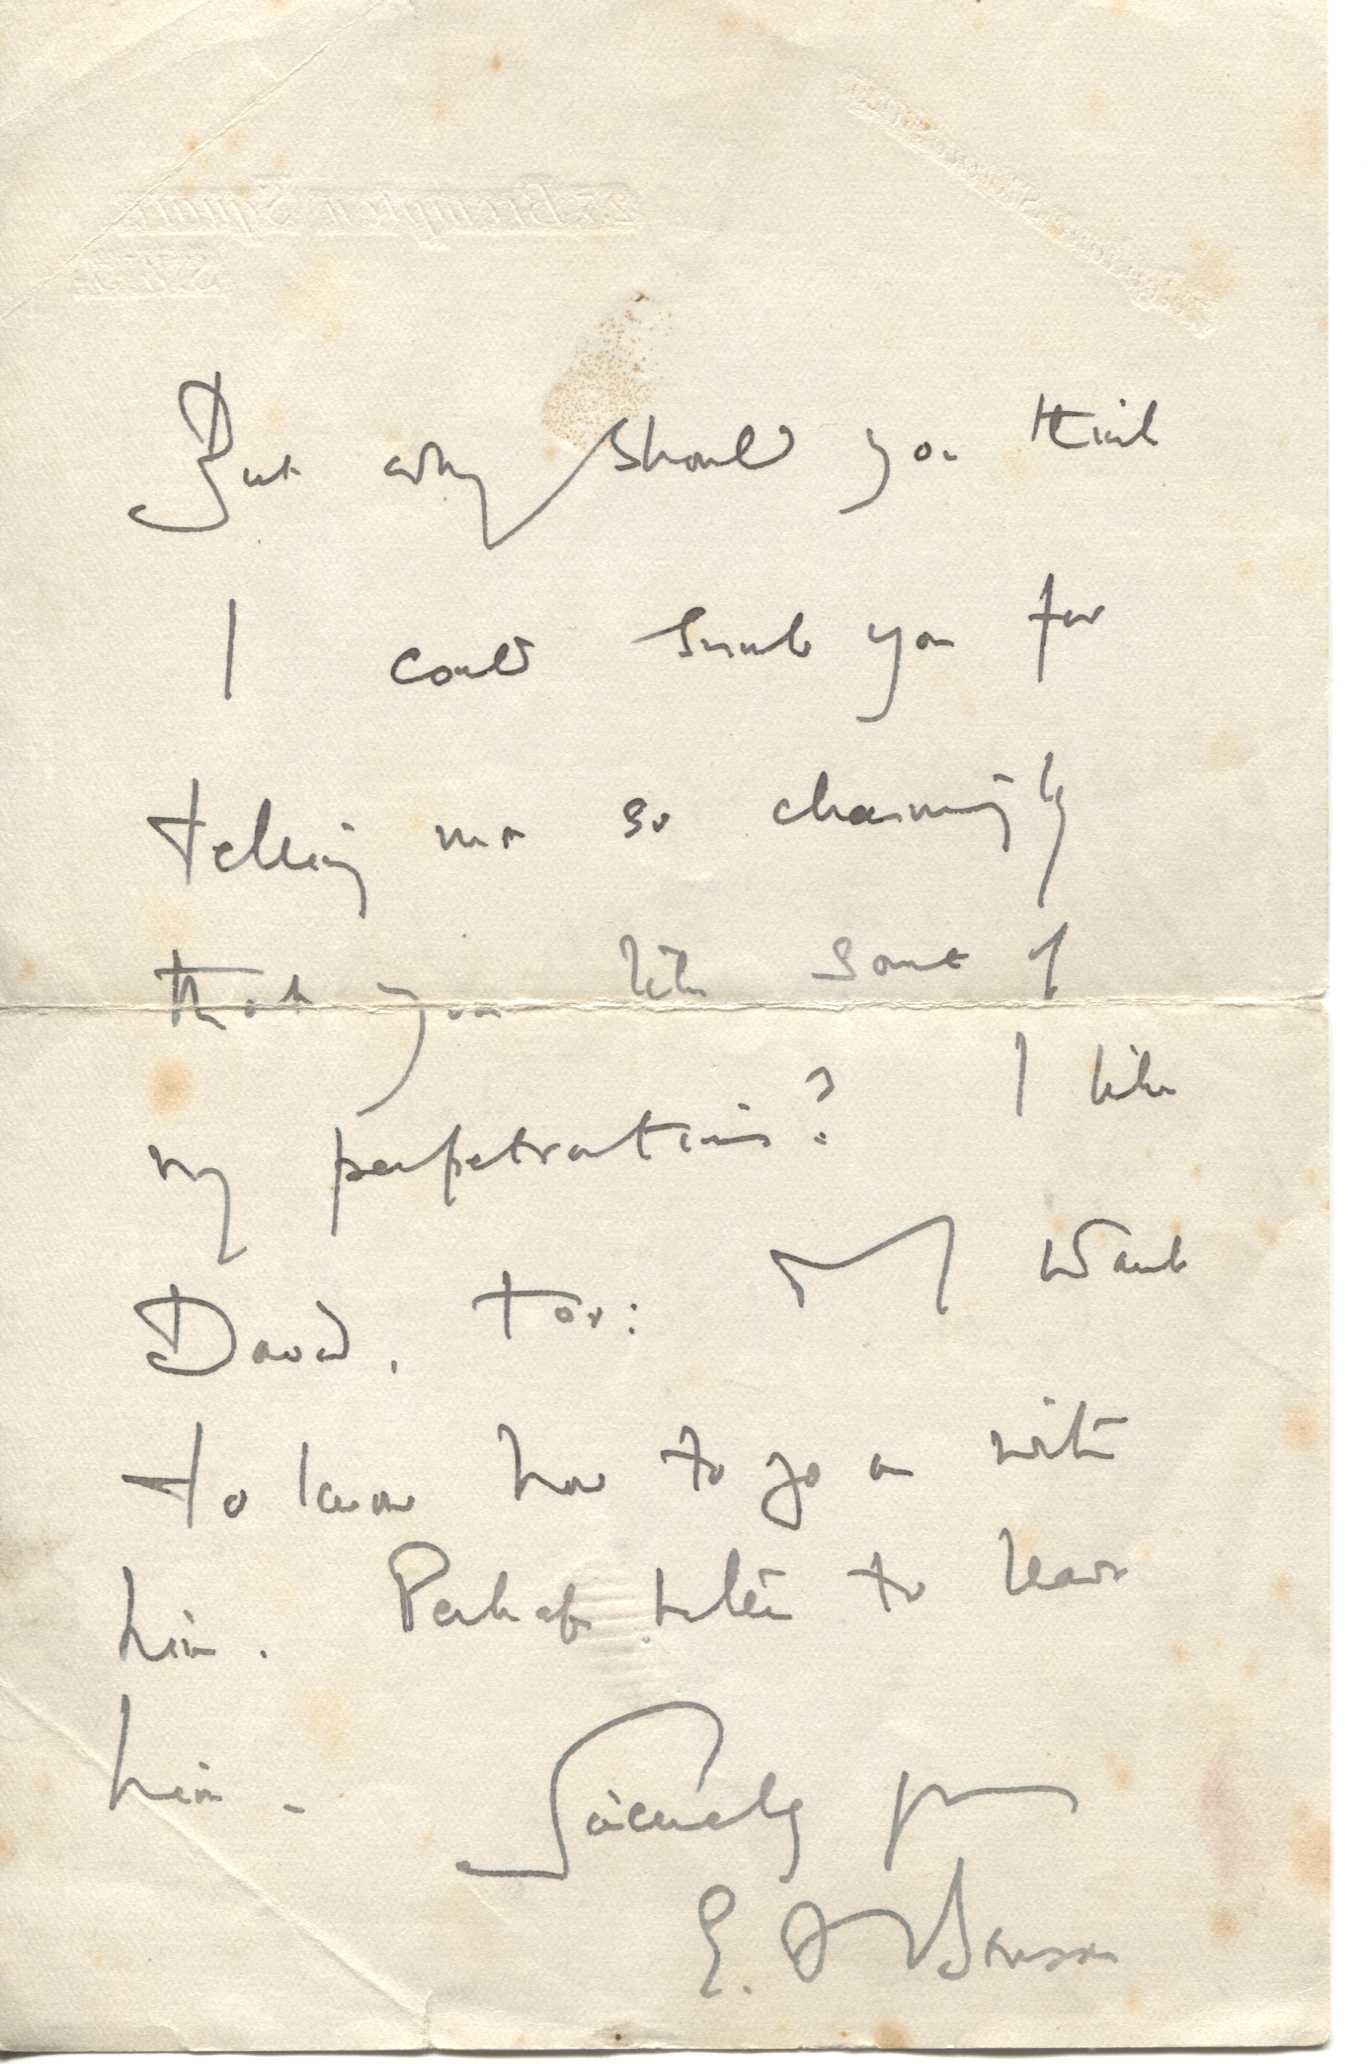 25 Brompton Square
S.W.3.
But why should you think
I could snub you for
telling me so charmingly
that you like some of
my perpetrations? I like
David, too: I want
to know how to go on with
him. Perhaps to leave
him.
Sincerely yours
E. F. Benson